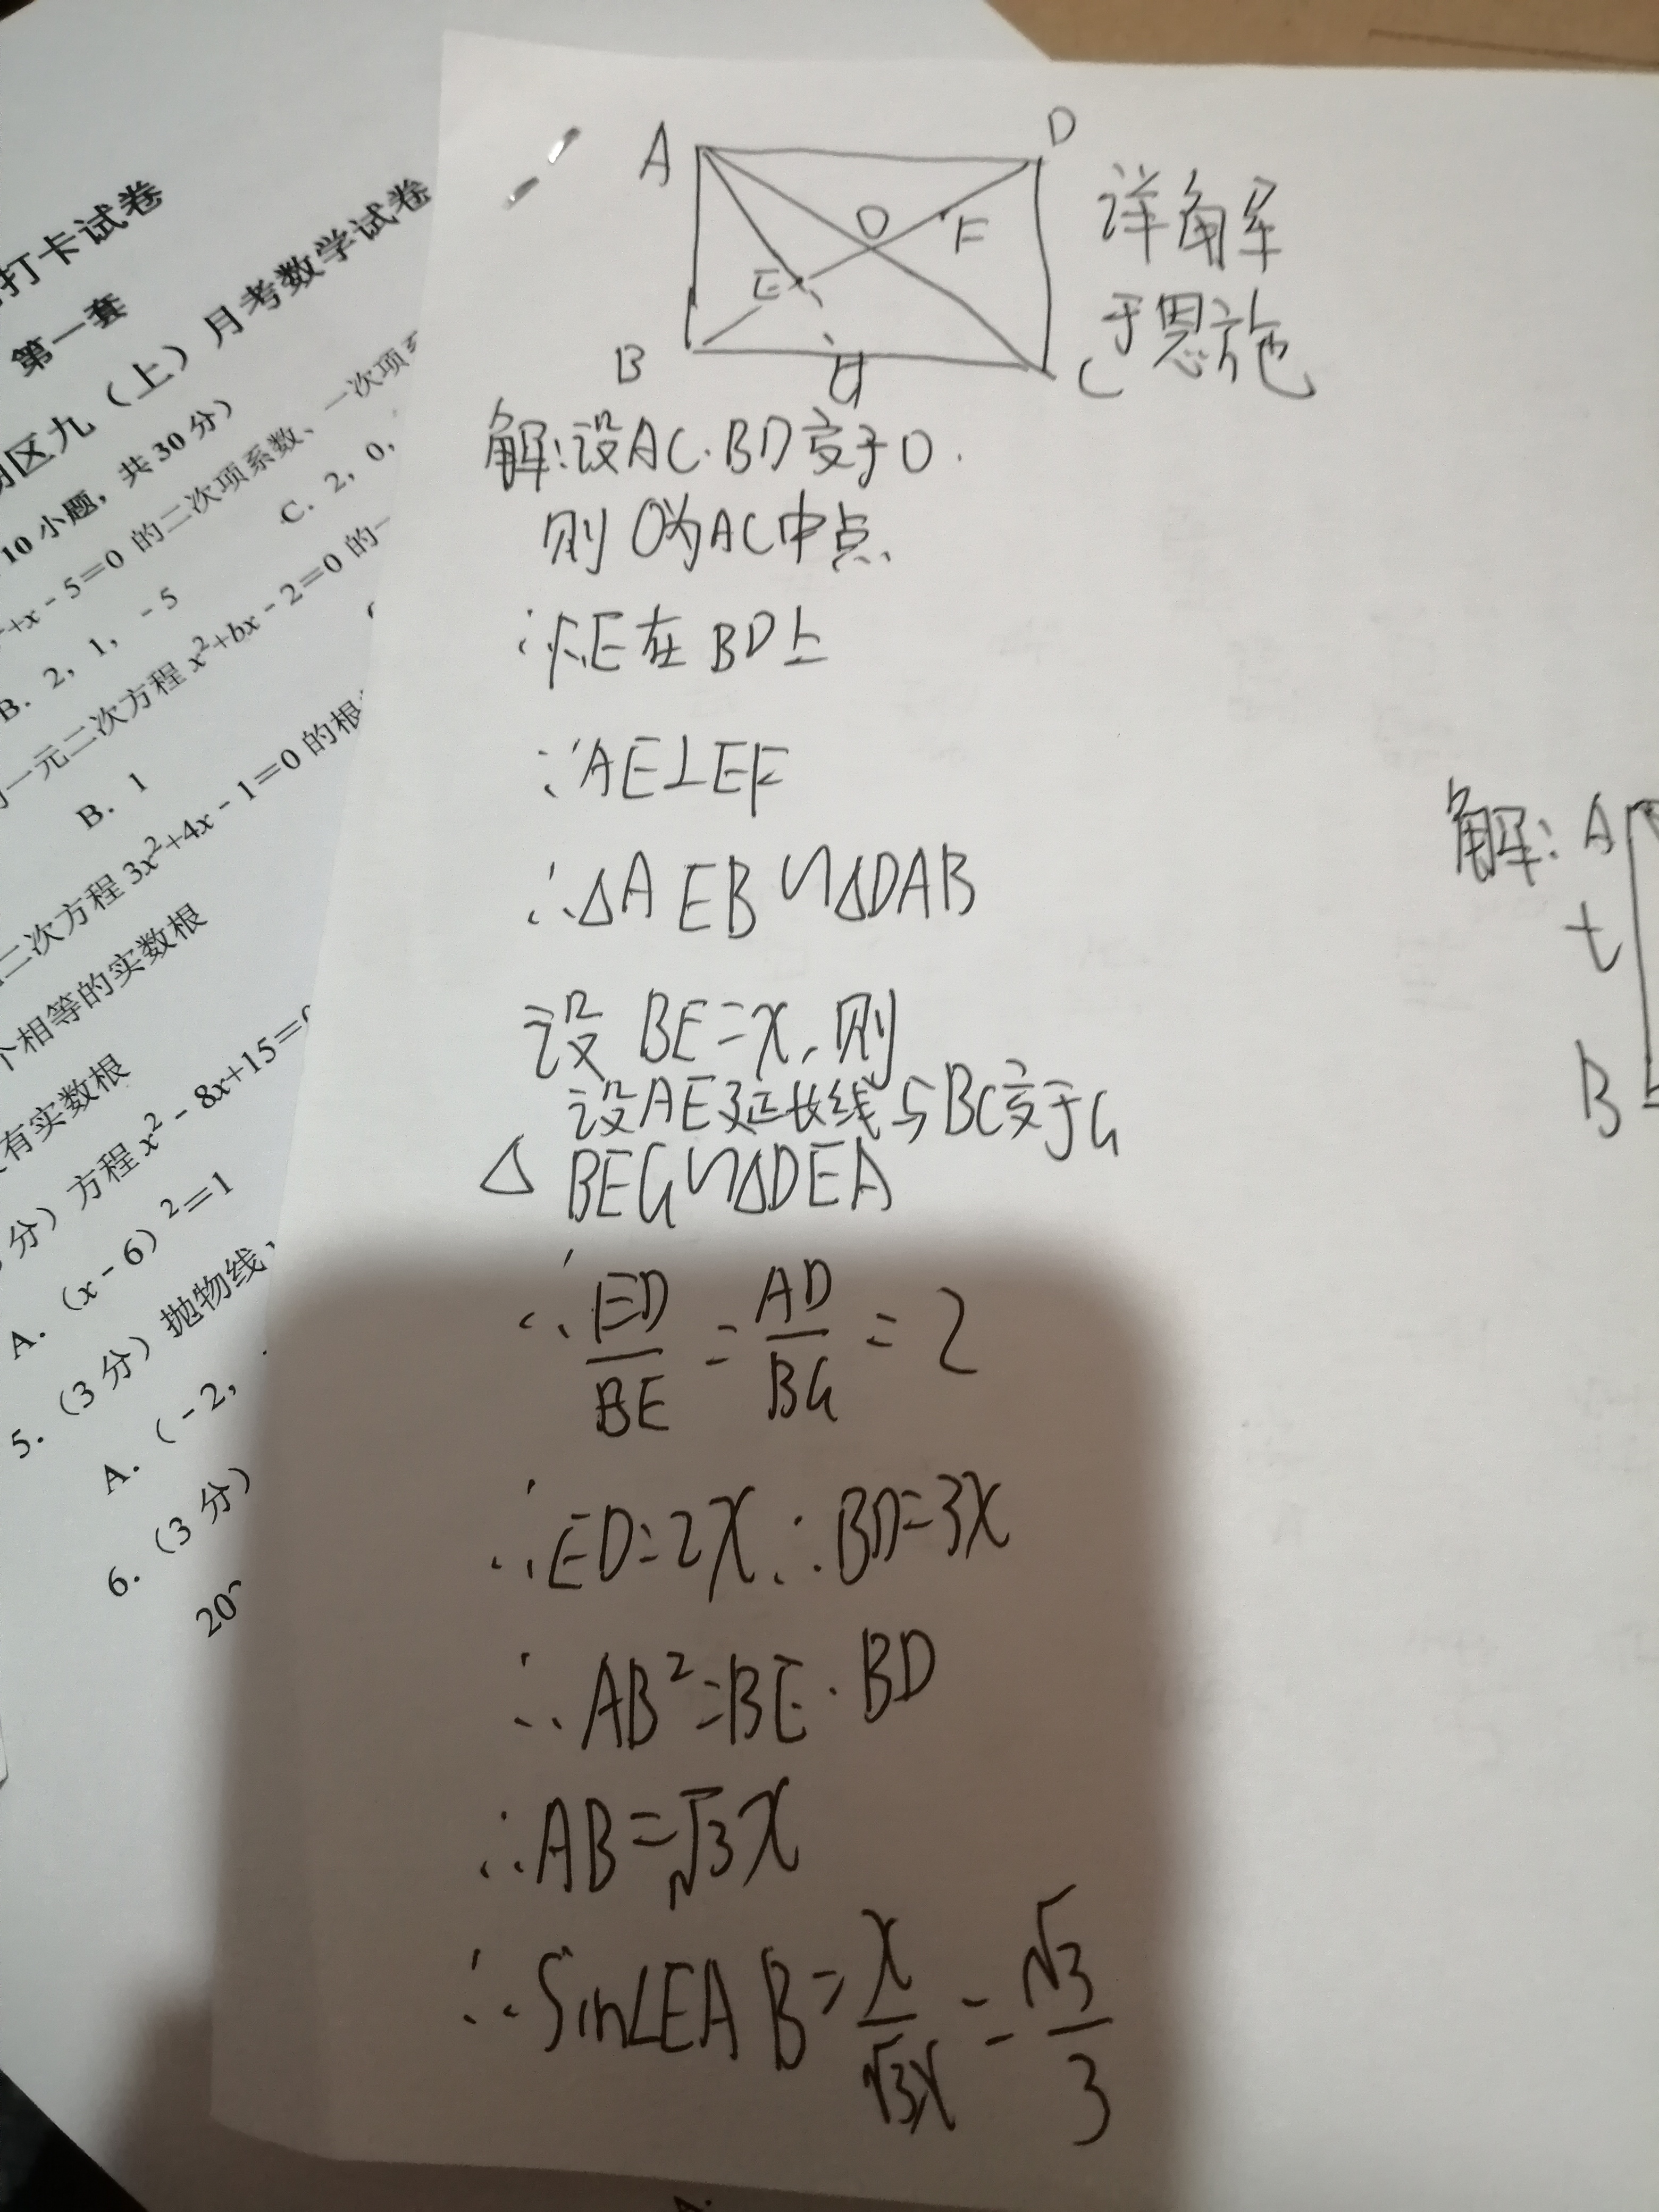 打卡试卷
第一套
区九（上）月考数学试卷
10小题，共30分）
+x-5=0的二次项系数、一次项系
B. 2, 1, -5
C. 2, 0,
一元二次方程x²+bx-2=0的一
B. 1
二次方程3x²+4x-1=0的根
个相等的实数根
有实数根
分）方程x²-8x+15=0
A.（x-6）²=1
5.（3分）抛物线
A.（-2,
6.（3分）
20
A
D
O
F
E
B
G
C
详解
于恩施
解:设AC.BD交于O.
则O为AC中点.
∵F.E在BD上
∵AE⊥EF
∴△AEB∽△DAB
设BE=x,则
设AE延长线与BC交于G
△BEG∽△DEA
∴ED/BE=AD/BG=2
∴ED=2x∴BD=3x
∴AB²=BE·BD
∴AB=√3x
∴Sin∠EAB=x/√3x=√3/3
解:A
t
B